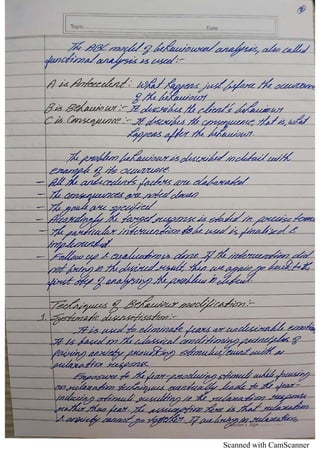 Topic Date
The ABC model of behavioural analysis, also called
functional analysis is used :-
A is Antecedent : What happens just before the occurrence
of the behaviour
B is Behaviour :- It describes the client's behaviour
C is Consequence :- It describes the consequence that is, what
happens after the behaviour.
The problem behaviour is described in detail with
example of its occurrence.
- All the antecedents factors are elaborated
- The consequences are noted down
- The goals are specified
- Accordingly the target response is stated in precise terms
- The particular intervention to be used is finalised &
implemented
- Follow up & evaluation is done. If the intervention did
not bring in the desired result then we again go back to the
first step of analysing the problem & deficit.
Techniques of Behaviour modification :-
1. Systematic desensitisation :-
It is used to eliminate fears or undesirable emotion
It is based on the classical conditioning principles of
pairing anxiety provoking stimulus/event with a
relaxation response.
Exposure to the fear-producing stimuli while focusing
on relaxation techniques eventually leads to the fear-
inducing stimuli resulting in the relaxation response
rather than fear. The assumption here is that relaxation
& anxiety cannot go together. If one being in relaxation
Scanned with CamScanner